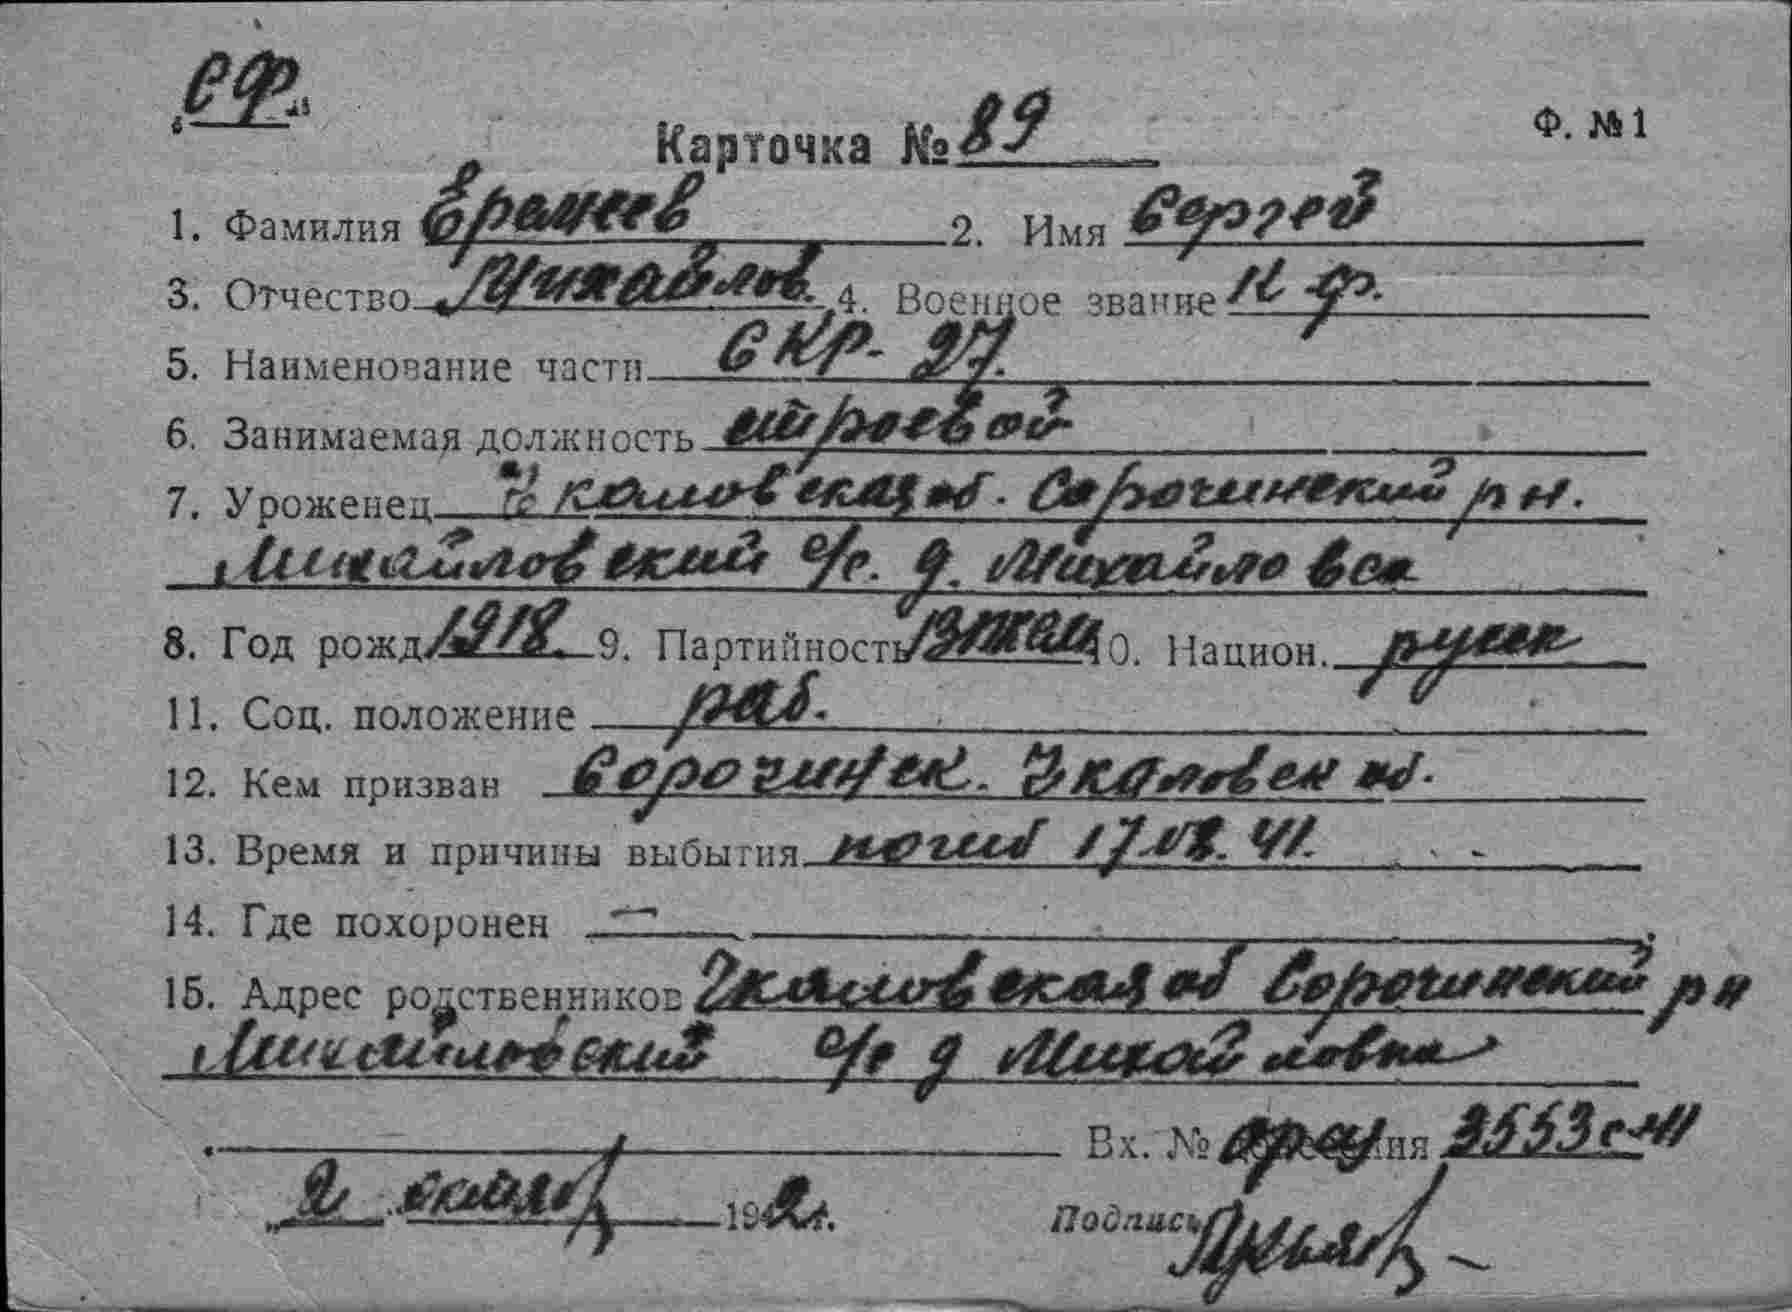 СФ.
Карточка № 89
Ф. №1
1. Фамилия Еремеев 2. Имя Сергей
3. Отчество Михайлов. 4. Военное звание к ф.
5. Наименование части СКР-27.
6. Занимаемая должность строевой
7. Уроженец Чкаловская об. Сорочинский р н.
Михайловский с/с. д. Михайловка
8. Год рожд 1918. 9. Партийность 10. Национ. русск
11. Соц. положение раб.
12. Кем призван Сорочинск. Чкаловск об.
13. Время и причины выбытия погиб 17.08.41.
14. Где похоронен —
15. Адрес родственников Чкаловская об Сорочинский р н
Михайловский с/с д Михайловка
Вх. №
2 194 г.
Подпись